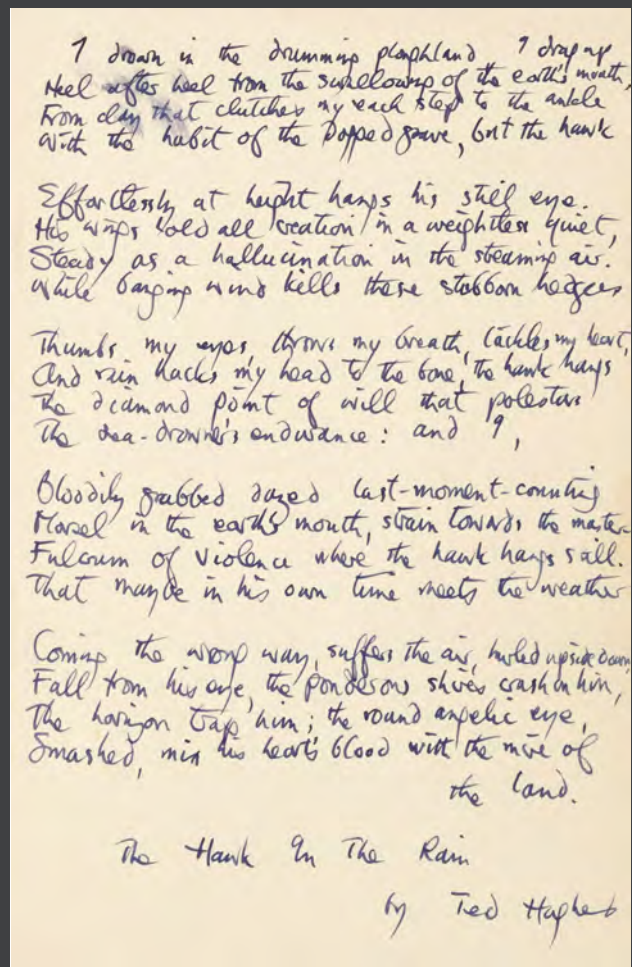 I drown in the drumming ploughland, I drag up
Heel after heel from the swallowing of the earth's mouth,
From clay that clutches my each step to the ankle
With the habit of the dogged grave, but the hawk
Effortlessly at height hangs his still eye.
His wings hold all creation in a weightless quiet,
Steady as a hallucination in the streaming air.
While banging wind kills these stubborn hedges
Thumbs my eyes, throws my breath, tackles my heart,
And rain hacks my head to the bone, the hawk hangs
The diamond point of will that polestars
The sea-drowner's endurance: and I,
Bloodily grabbed dazed last-moment-counting
Morsel in the earth's mouth, strain towards the master-
Fulcrum of violence where the hawk hangs still.
That maybe in his own time meets the weather
Coming the wrong way, suffers the air, hurled upside down,
Fall from his eye, the ponderous shires crash on him,
The horizon trap him; the round angelic eye,
Smashed, mix his heart's blood with the mire of
the land.
The Hawk In The Rain
by Ted Hughes